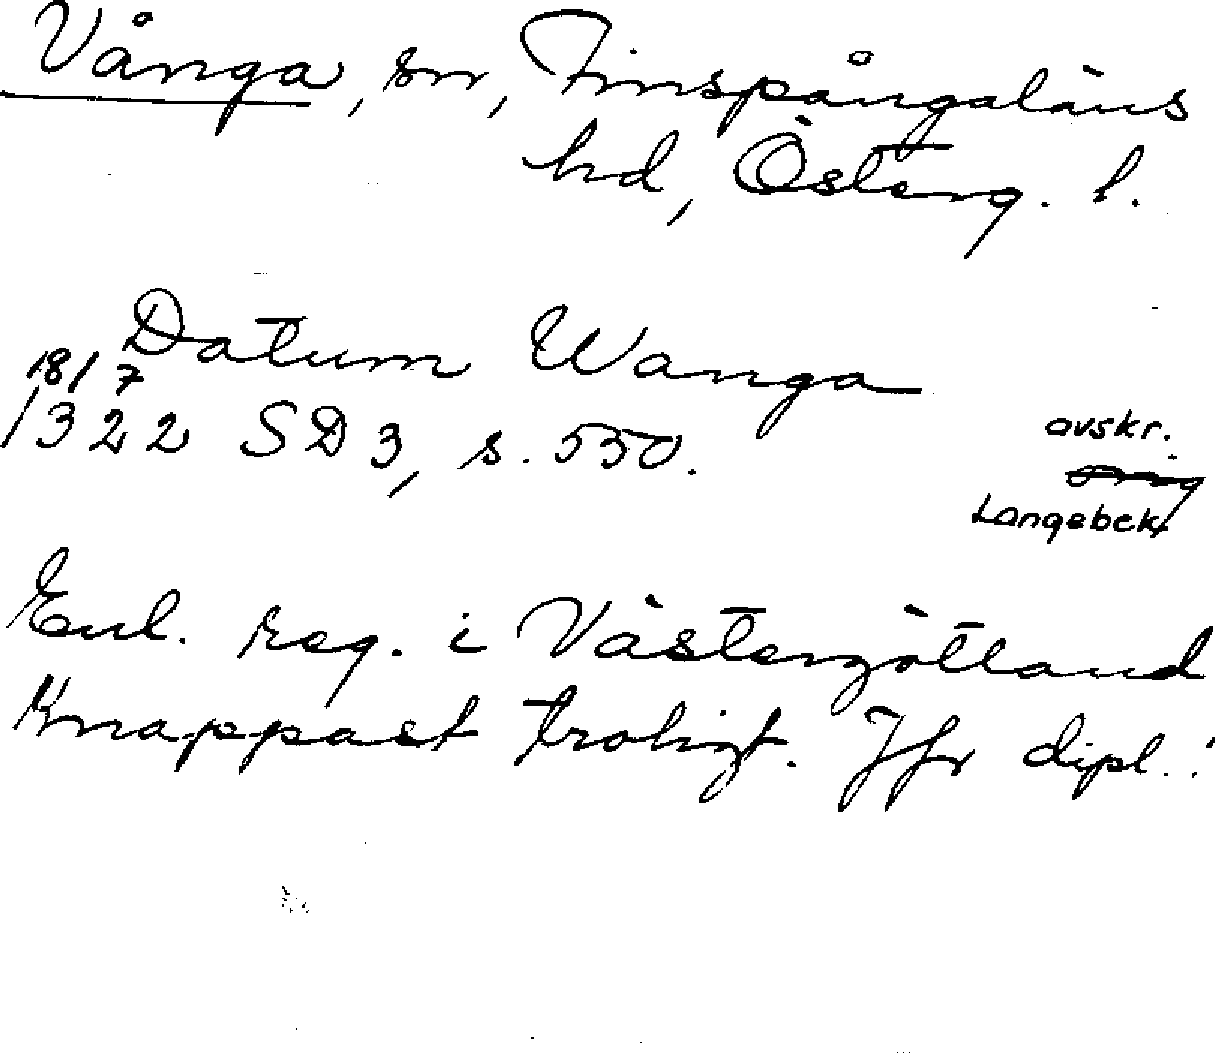 Vånga, sn, Finspångaläns
hd, Österg. l.
Datum Wanga
18/7
1322 SD 3, s. 550.
avskr.
Langebek
Enl. reg. i Västergötland
Knappast troligt. Jfr dipl.!